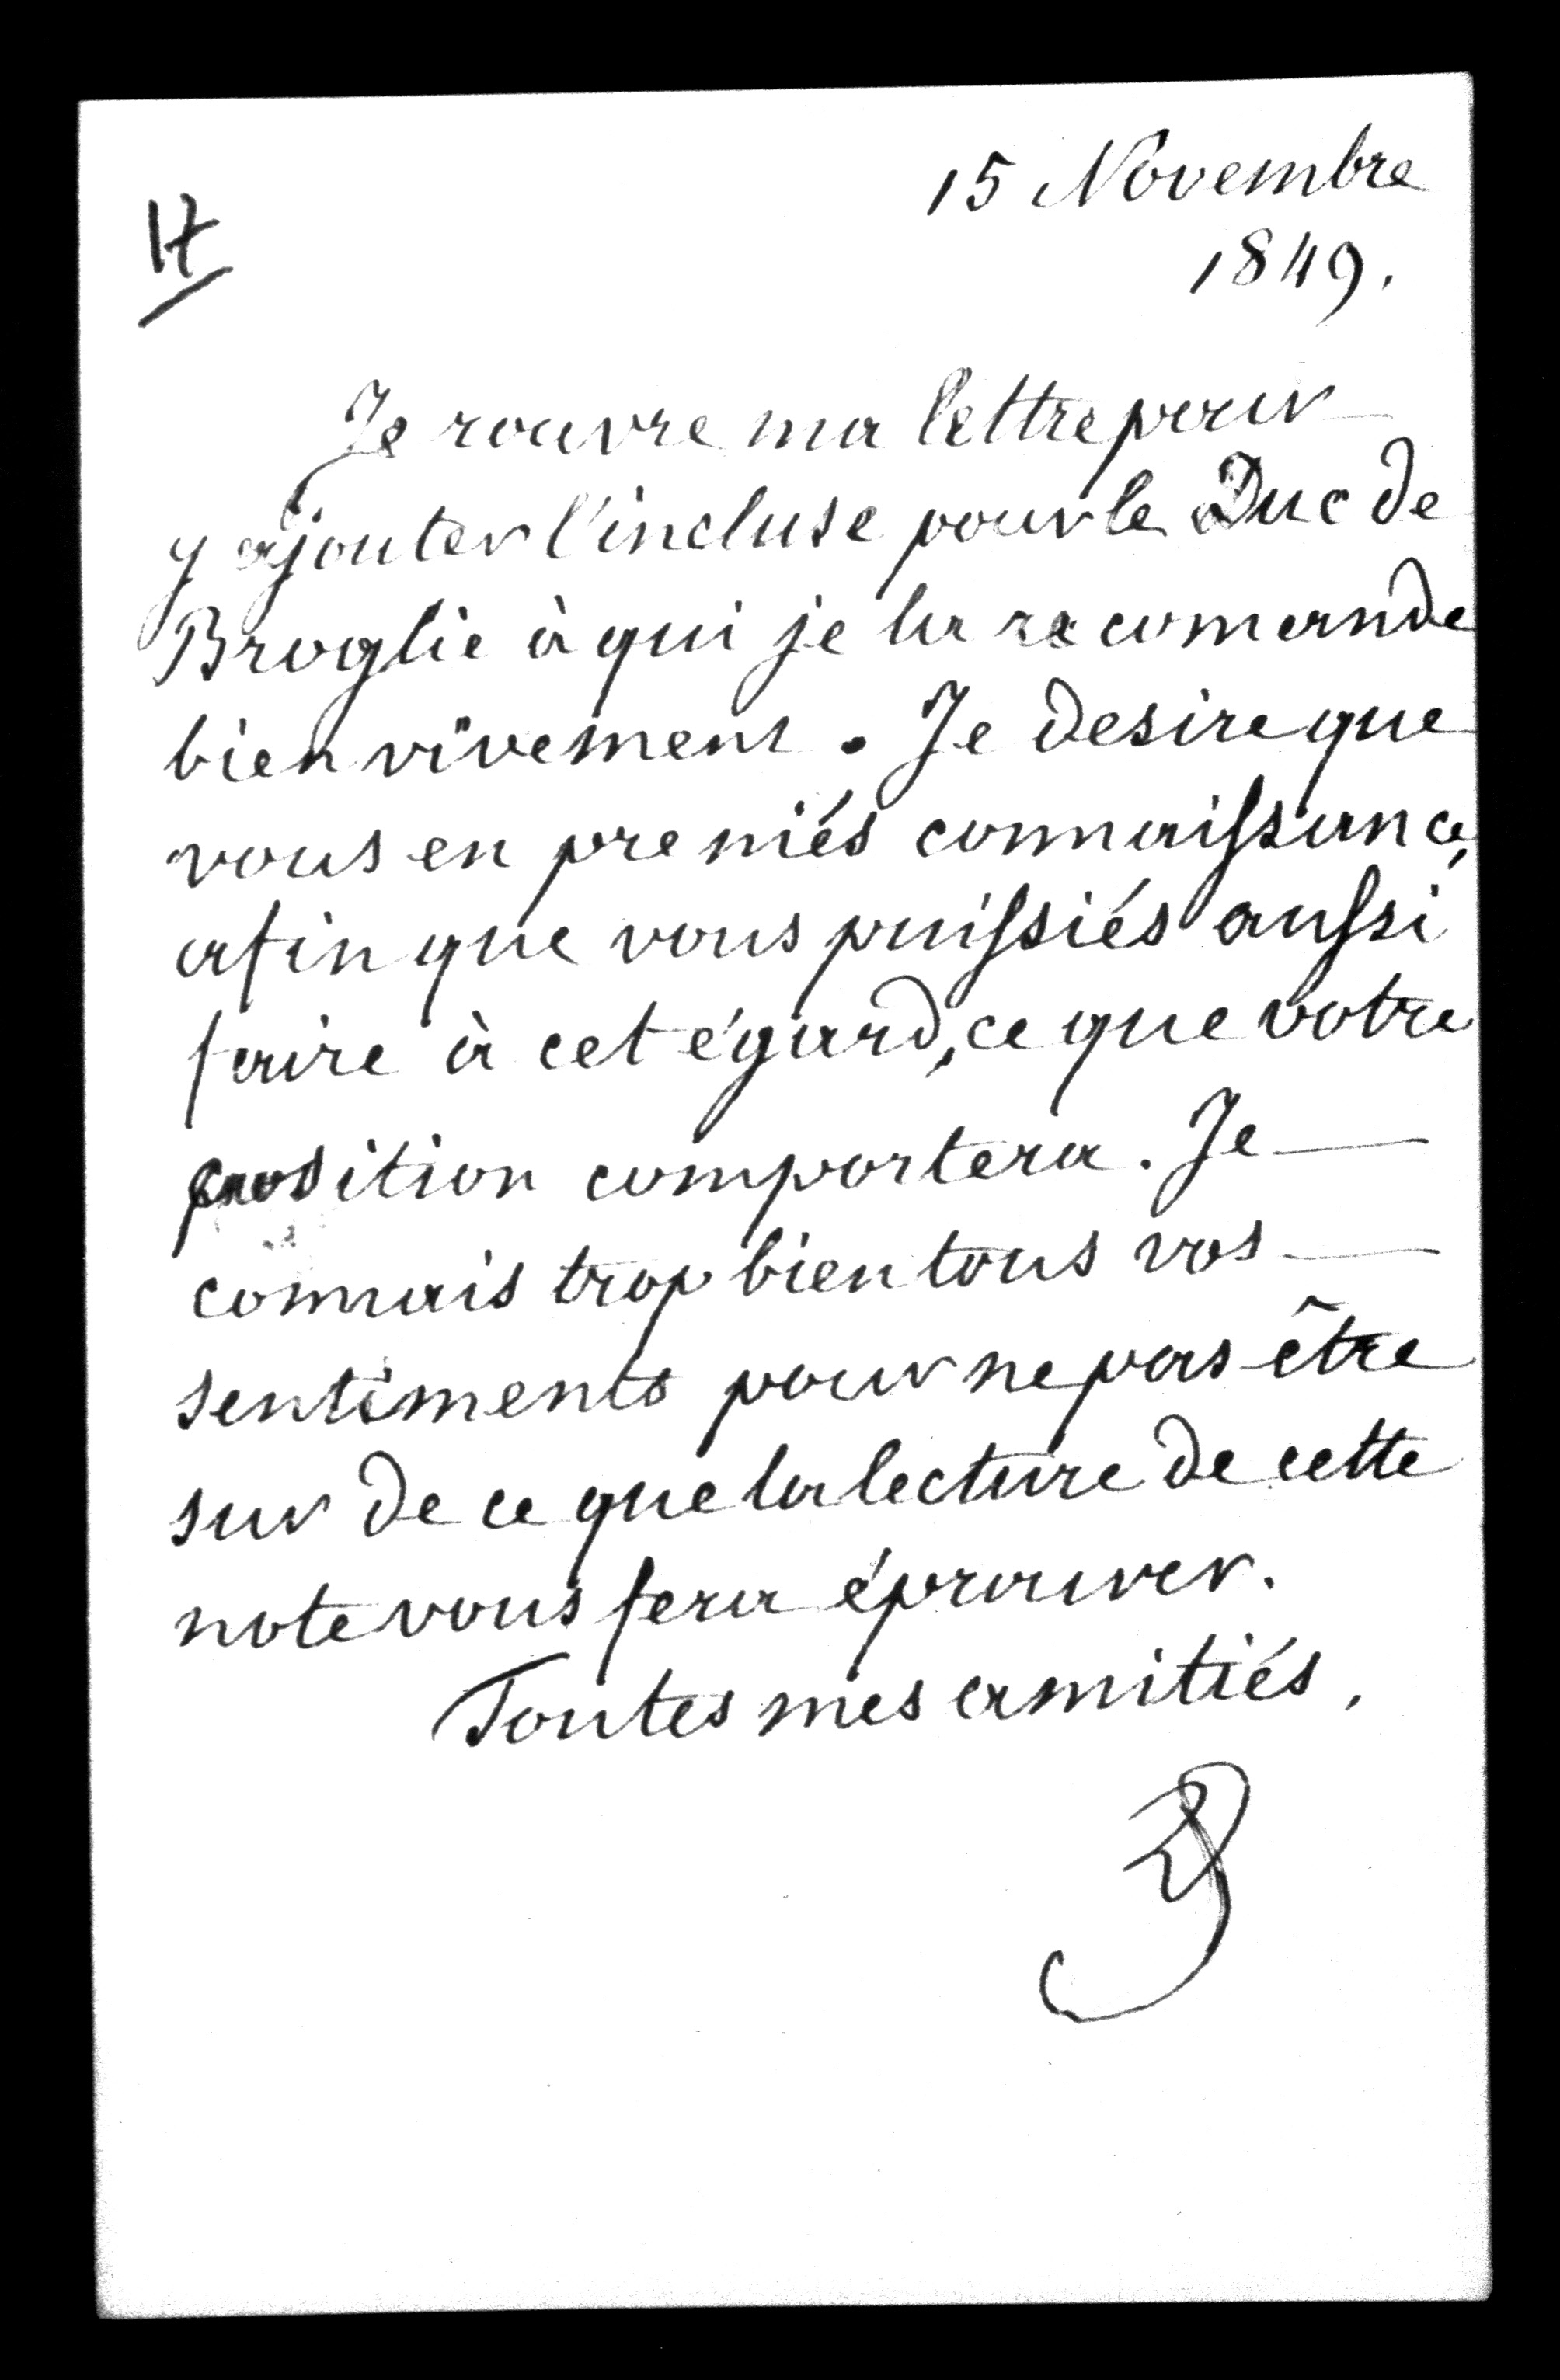 15 Novembre
17
1849.
Je rouvre ma lettre pour
y ajouter l'incluse pour le Duc de
Broglie à qui je la recomande
bien vivement. Je desire que
vous en preniés connaissance,
afin que vous puissiés aussi
faire à cet égard, ce que votre
position comportera. Je
connais trop bien tous vos
sentiments pour ne pas être
sur de ce que la lecture de cette
note vous fera éprouver.
Toutes mes amitiés,